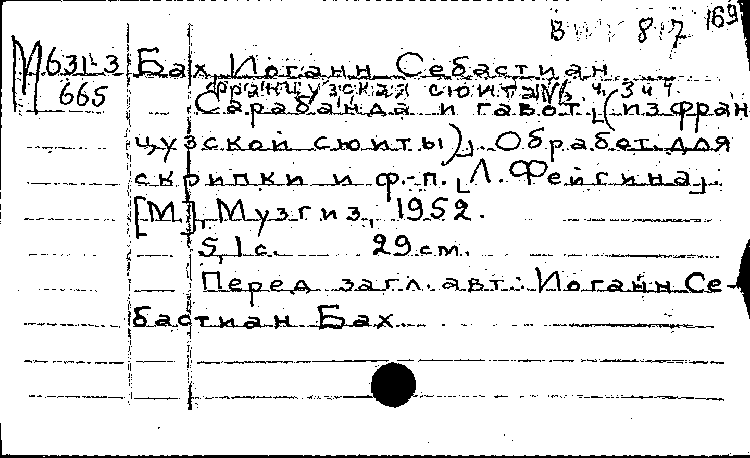 BWV 817 169
М 631-3 Бах, Иоганн Себастиан
665 Французская сюита № 6 ч. 3 и 4
Сарабанда и гавот, (из фран
цузской сюиты). Обработ. для
скрипки и ф.-п. Л. Фейгина.
[М.], Музгиз, 1952.
5, 1 с. 29 см.
Перед загл. авт.: Иоганн Се-
бастиан Бах